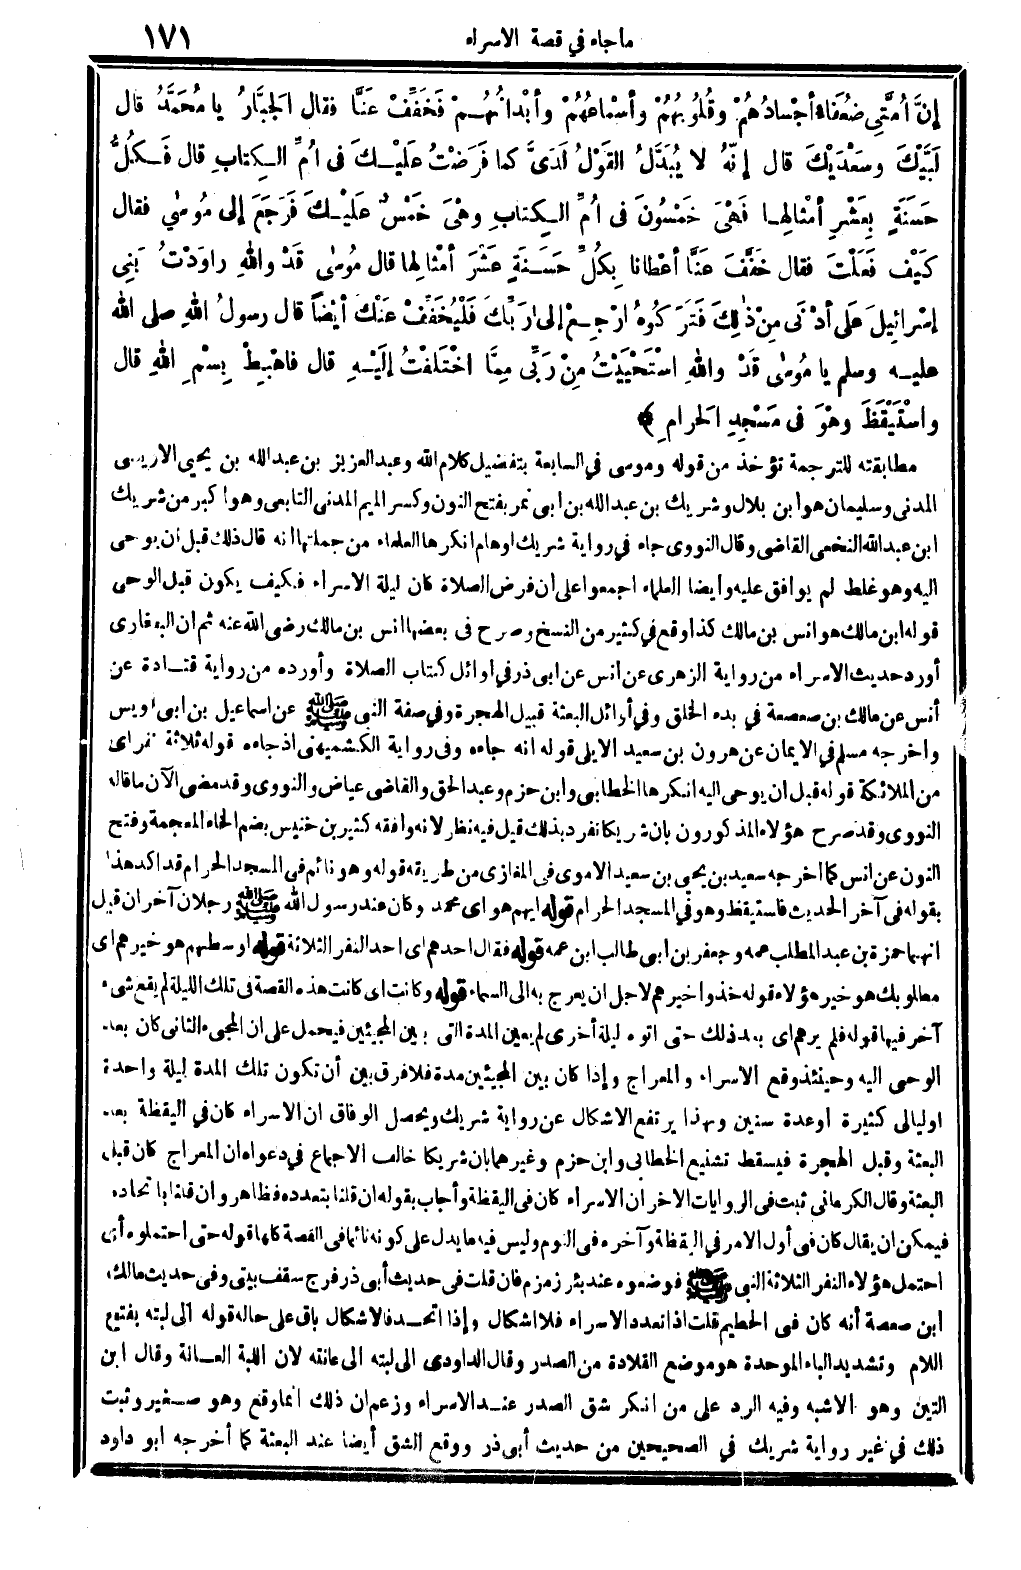 ماجاء في قصة الاسراء
١٧١
إِنَّ أُمَّتِي ضُعَفَاءُ أجْسَادُهُمْ وقُلُوبُهُمْ وأسْماعُهُمْ وأبْدانُهُـمْ فَخَفِّفْ عَنَّا فقال الجَبَّارُ يا مُحَمَّدُ قال
لَبَّيْكَ وسَعْدَيْكَ قال إنّهُ لا يُبَدَّلُ القَوْلُ لَدَىَّ كما فَرَضْتُ علَيْـكَ فى أمِّ الـكِتابِ قال فَـكُلُّ
حَسَنَةٍ بِعَشْرِ أمْثالِهـا فَهْىَ خَمْسُونَ فى أُمِّ الـكِتابِ وهْىَ خَمْسٌ علَيْـكَ فَرَجَعَ إلى مُوسَٰى فقال
كَيْفَ فَعَلْتَ فقال خَفَّفَ عَنَّا أعْطانا بِكُلِّ حَسَـنةٍ عَشْرَ أمْثالِها قال مُوسَٰى قَدْ واللهِ راوَدْتُ بَنِي
إسْرائِيلَ عَلَى أدْنَى مِنْ ذٰلِكَ فَتَرَكُوهُ ارْجِـعْ إلى رَبِّكَ فَلْيُخَفِّفْ عَنْكَ أيْضاً قال رسولُ اللهِ صلى الله
عليـه وسلم يا مُوسَٰى قَدْ واللهِ اسْتَحْيَيْتُ مِنْ رَبِّى مِمَّا اخْتَلَفْتُ إلَيْـهِ قال فاهْبِطْ بِسْمِ اللهِ قال
واسْتَيْقَظَ وهْوَ فى مَسْجِدِ الحَرامِ ﴾
مطابقته للترجمة تؤخذ من قوله وموسى في السابعة بتفضيل كلام الله وعبد العزيز بن عبد الله بن يحيى الاويسى
المدنى وسليمان هو ابن بلال وشريك بن عبد الله بن ابى نمر بفتح النون وكسر الميم المدنى التابعى وهو اكبر من شريك
ابن عبد الله النخعى القاضى وقال النووى جاء في رواية شريك اوهام انكرها العلماء من جملتها انه قال ذلك قبل أن يوحى
اليه وهو غلط لم يوافق عليه وأيضا العلماء اجمعوا على ان فرض الصلاة كان ليلة الاسراء فكيف يكون قبل الوحى
قوله ابن مالك هو انس بن مالك كذا وقع في كثير من النسخ وصرح فى بعضها انس بن مالك رضى الله عنه ثم ان البخارى
أورد حديث الاسراء من رواية الزهرى عن انس عن ابى ذر في اوائل كتاب الصلاة وأورده من رواية قتـادة عن
أنس عن مالك بن صعصعة في بدء الخلق وفي أوائل البعثة قبيل الهجرة وفي صفة النبى ﷺ عن اسماعيل بن ابى اويس
واخرجه مسلم في الايمان عن هرون بن سعيد الايلى قوله انه جاءه وفى رواية الكشميهنى اذ جاءه قوله ثلاثة نفر اى
من الملائكة قوله قبل ان يوحى اليه انكرها الخطابى وابن حزم وعبد الحق والقاضى عياض والنووى وقد مضى الآن ما قاله
النووى وقد صرح هؤلاء المذكورون بان شريكا تفرد بذلك قيل فيه نظر لانه وافقه كثير بن خنيس بضم الخاء المعجمة وفتح
النون عن انس كما اخرجه سعيد بن يحيى بن سعيد الاموى فى المغازى من طريقه قوله وهو نائم فى المسجد الحرام قد اكد هذا
بقوله فى آخر الحديث فاستيقظ وهو في المسجد الحرام قوله ايهم هو اى محمد وكان عند رسول الله ﷺ رجلان آخران قيل
انهما حمزة بن عبد المطلب عمه وجعفر بن ابى طالب ابن عمه قوله فقال احدهم اى احد النفر الثلاثة قوله اوسطهم هو خيرهم اى
مطلوبك هو خير هؤلاء قوله خذوا خيرهم لاجل ان يعرج به الى السماء قوله وكانت اى كانت هذه القصة فى تلك الليلة لم يقع شىء
آخر فيها قوله فلم يرهم اى بعد ذلك حتى اتوه ليلة أخرى لم يعين المدة التى بين المجيئين فيحمل على ان المجىء الثانى كان بعد
الوحى اليه وحينئذ وقع الاسراء والمعراج وإذا كان بين المجيئين مدة فلا فرق بين أن تكون تلك المدة ليلة واحدة
اوليالى كثيرة اوعدة سنين وبهذا يرتفع الاشكال عن رواية شريك ويحصل الوفاق ان الاسراء كان في اليقظة بعد
البعثة وقبل الهجرة فيسقط تشنيع الخطابى وابن حزم وغيرهما بان شريكا خالف الاجماع في دعواه ان المعراج كان قبل
البعثة وقال الكرمانى ثبت فى الروايات الاخر ان الاسراء كان فى اليقظة وأجاب بقوله ان قلنا بتعدده فظاهر وان قلنا باتحاده
فيمكن ان يقال كان فى أول الامر في اليقظة وآخره فى النوم وليس فيه ما يدل على كونه نائما فى القصة كلها قوله حتى احتملوه أى
احتمل هؤلاء النفر الثلاثة النبى ﷺ فوضعوه عند بئر زمزم فان قلت فى حديث أبى ذر فرج سقف بيتى وفى حديث مالك
ابن صعصة أنه كان فى الحطيم قلت اذا تعدد الاسراء فلا اشكال وإذا اتحـد فالاشكال باق على حاله قوله الى لبته بفتح
اللام وتشديد الباء الموحدة هو موضع القلادة من الصدر وقال الداودى الى لبته الى عانته لان اللبة العـانة وقال ابن
التين وهو الاشبه وفيه الرد على من انكر شق الصدر عنـد الاسراء وزعم ان ذلك انما وقع وهو صـغير وثبت
ذلك في غير رواية شريك في الصحيحين من حديث أبى ذر ووقع الشق أيضا عند البعثة كما أخرجه ابو داود